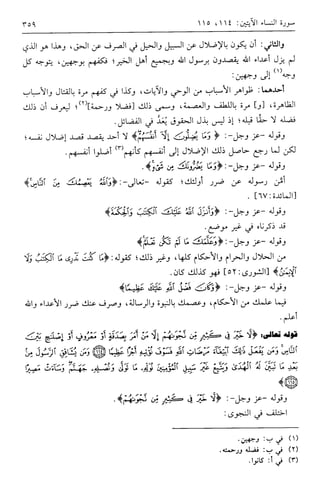 سورة النساء الآيتين: ١١٤، ١١٥ ٣٥٩
والثاني: أن يكون بالإضلال عن السبيل والحيل في الصرف عن الحق، وهذا هو الذي
لم يزل أعداء الله يقصدون برسول الله وبجميع أهل الخير؛ فكفهم بوجهين، يتوجه كل
وجه(١) إلى وجهين:
أحدهما: ظواهر الأسباب من الوحي والآيات، وكذا في كفهم مرة بالقتال والأسباب
الظاهرة، [و] مرة باللطف والعصمة، وسمى ذلك [فضلا ورحمة](٢)؛ ليعرف أن ذلك
فضله لا حقًّا قبله؛ إذ ليس بذل الحقوق يُعَدُّ في الفضائل.
وقوله -عز وجل-: ﴿وَمَا يُضِلُّونَ إِلَّا أَنفُسَهُمْ﴾ لا أحد يقصد قصد إضلال نفسه؛
لكن لما رجع حاصل ذلك الإضلال إلى أنفسهم كأنهم(٣) أضلوا أنفسهم.
وقوله -عز وجل-: ﴿وَمَا يَضُرُّونَكَ مِن شَيْءٍ﴾.
أمَّن رسوله عن ضرر أولئك؛ كقوله -تعالى-: ﴿وَاللَّهُ يَعْصِمُكَ مِنَ النَّاسِ﴾
[المائدة: ٦٧].
وقوله -عز وجل-: ﴿وَأَنزَلَ اللَّهُ عَلَيْكَ الْكِتَابَ وَالْحِكْمَةَ﴾
قد ذكرناه في غير موضع.
وقوله -عز وجل-: ﴿وَعَلَّمَكَ مَا لَمْ تَكُن تَعْلَمُ﴾
من الحلال والحرام والأحكام كلها، وغير ذلك؛ كقوله: ﴿مَا كُنتَ تَدْرِي مَا الْكِتَابُ وَلَا
الْإِيمَانُ﴾ [الشورى: ٥٢] فهو كذلك كان.
وقوله -عز وجل-: ﴿وَكَانَ فَضْلُ اللَّهِ عَلَيْكَ عَظِيمًا﴾
فيما علمك من الأحكام، وعصمك بالنبوة والرسالة، وصرف عنك ضرر الأعداء والله
أعلم.
قوله تعالى: ﴿لَّا خَيْرَ فِي كَثِيرٍ مِّن نَّجْوَاهُمْ إِلَّا مَنْ أَمَرَ بِصَدَقَةٍ أَوْ مَعْرُوفٍ أَوْ إِصْلَاحٍ بَيْنَ
النَّاسِ وَمَن يَفْعَلْ ذَٰلِكَ ابْتِغَاءَ مَرْضَاتِ اللَّهِ فَسَوْفَ نُؤْتِيهِ أَجْرًا عَظِيمًا (١١٤) وَمَن يُشَاقِقِ الرَّسُولَ مِن
بَعْدِ مَا تَبَيَّنَ لَهُ الْهُدَىٰ وَيَتَّبِعْ غَيْرَ سَبِيلِ الْمُؤْمِنِينَ نُوَلِّهِ مَا تَوَلَّىٰ وَنُصْلِهِ جَهَنَّمَ وَسَاءَتْ مَصِيرًا
(١١٥)﴾
وقوله -عز وجل-: ﴿لَّا خَيْرَ فِي كَثِيرٍ مِّن نَّجْوَاهُمْ﴾.
اختلف في النجوى:
(١) في ب: وجهين.
(٢) في ب: فضله ورحمته.
(٣) في أ: كانوا.